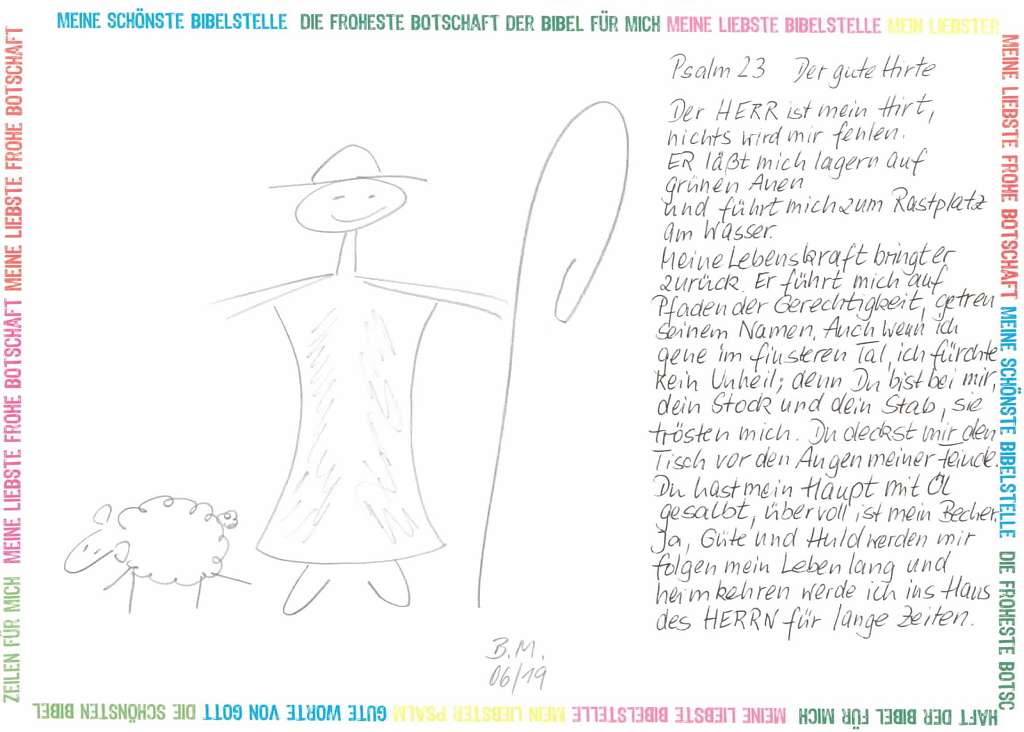 MEINE SCHÖNSTE BIBELSTELLE DIE FROHESTE BOTSCHAFT DER BIBEL FÜR MICH MEINE LIEBSTE BIBELSTELLE MEIN LIEBSTER
MEINE LIEBSTE FROHE BOTSCHAFT MEINE SCHÖNSTE BIBELSTELLE DIE FROHESTE BOTSC
HAFT DER BIBEL FÜR MICH MEINE LIEBSTE BIBELSTELLE MEIN LIEBSTER PSALM GUTE WORTE VON GOTT DIE SCHÖNSTEN BIBEL
ZEILEN FÜR MICH MEINE LIEBSTE FROHE BOTSCHAFT MEINE LIEBSTE FROHE BOTSCHAFT
Psalm 23 Der gute Hirte
Der HERR ist mein Hirt,
nichts wird mir fehlen.
ER läßt mich lagern auf
grünen Auen
und führt mich zum Rastplatz
am Wasser.
Meine Lebenskraft bringt er
zurück. Er führt mich auf
Pfaden der Gerechtigkeit, getreu
seinem Namen. Auch wenn ich
gehe im finsteren Tal, ich fürchte
kein Unheil; denn Du bist bei mir,
dein Stock und dein Stab, sie
trösten mich. Du deckst mir den
Tisch vor den Augen meiner Feinde.
Du hast mein Haupt mit Öl
gesalbt, übervoll ist mein Becher.
Ja, Güte und Huld werden mir
folgen mein Leben lang und
heimkehren werde ich ins Haus
des HERRN für lange Zeiten.
B.M.
06/19